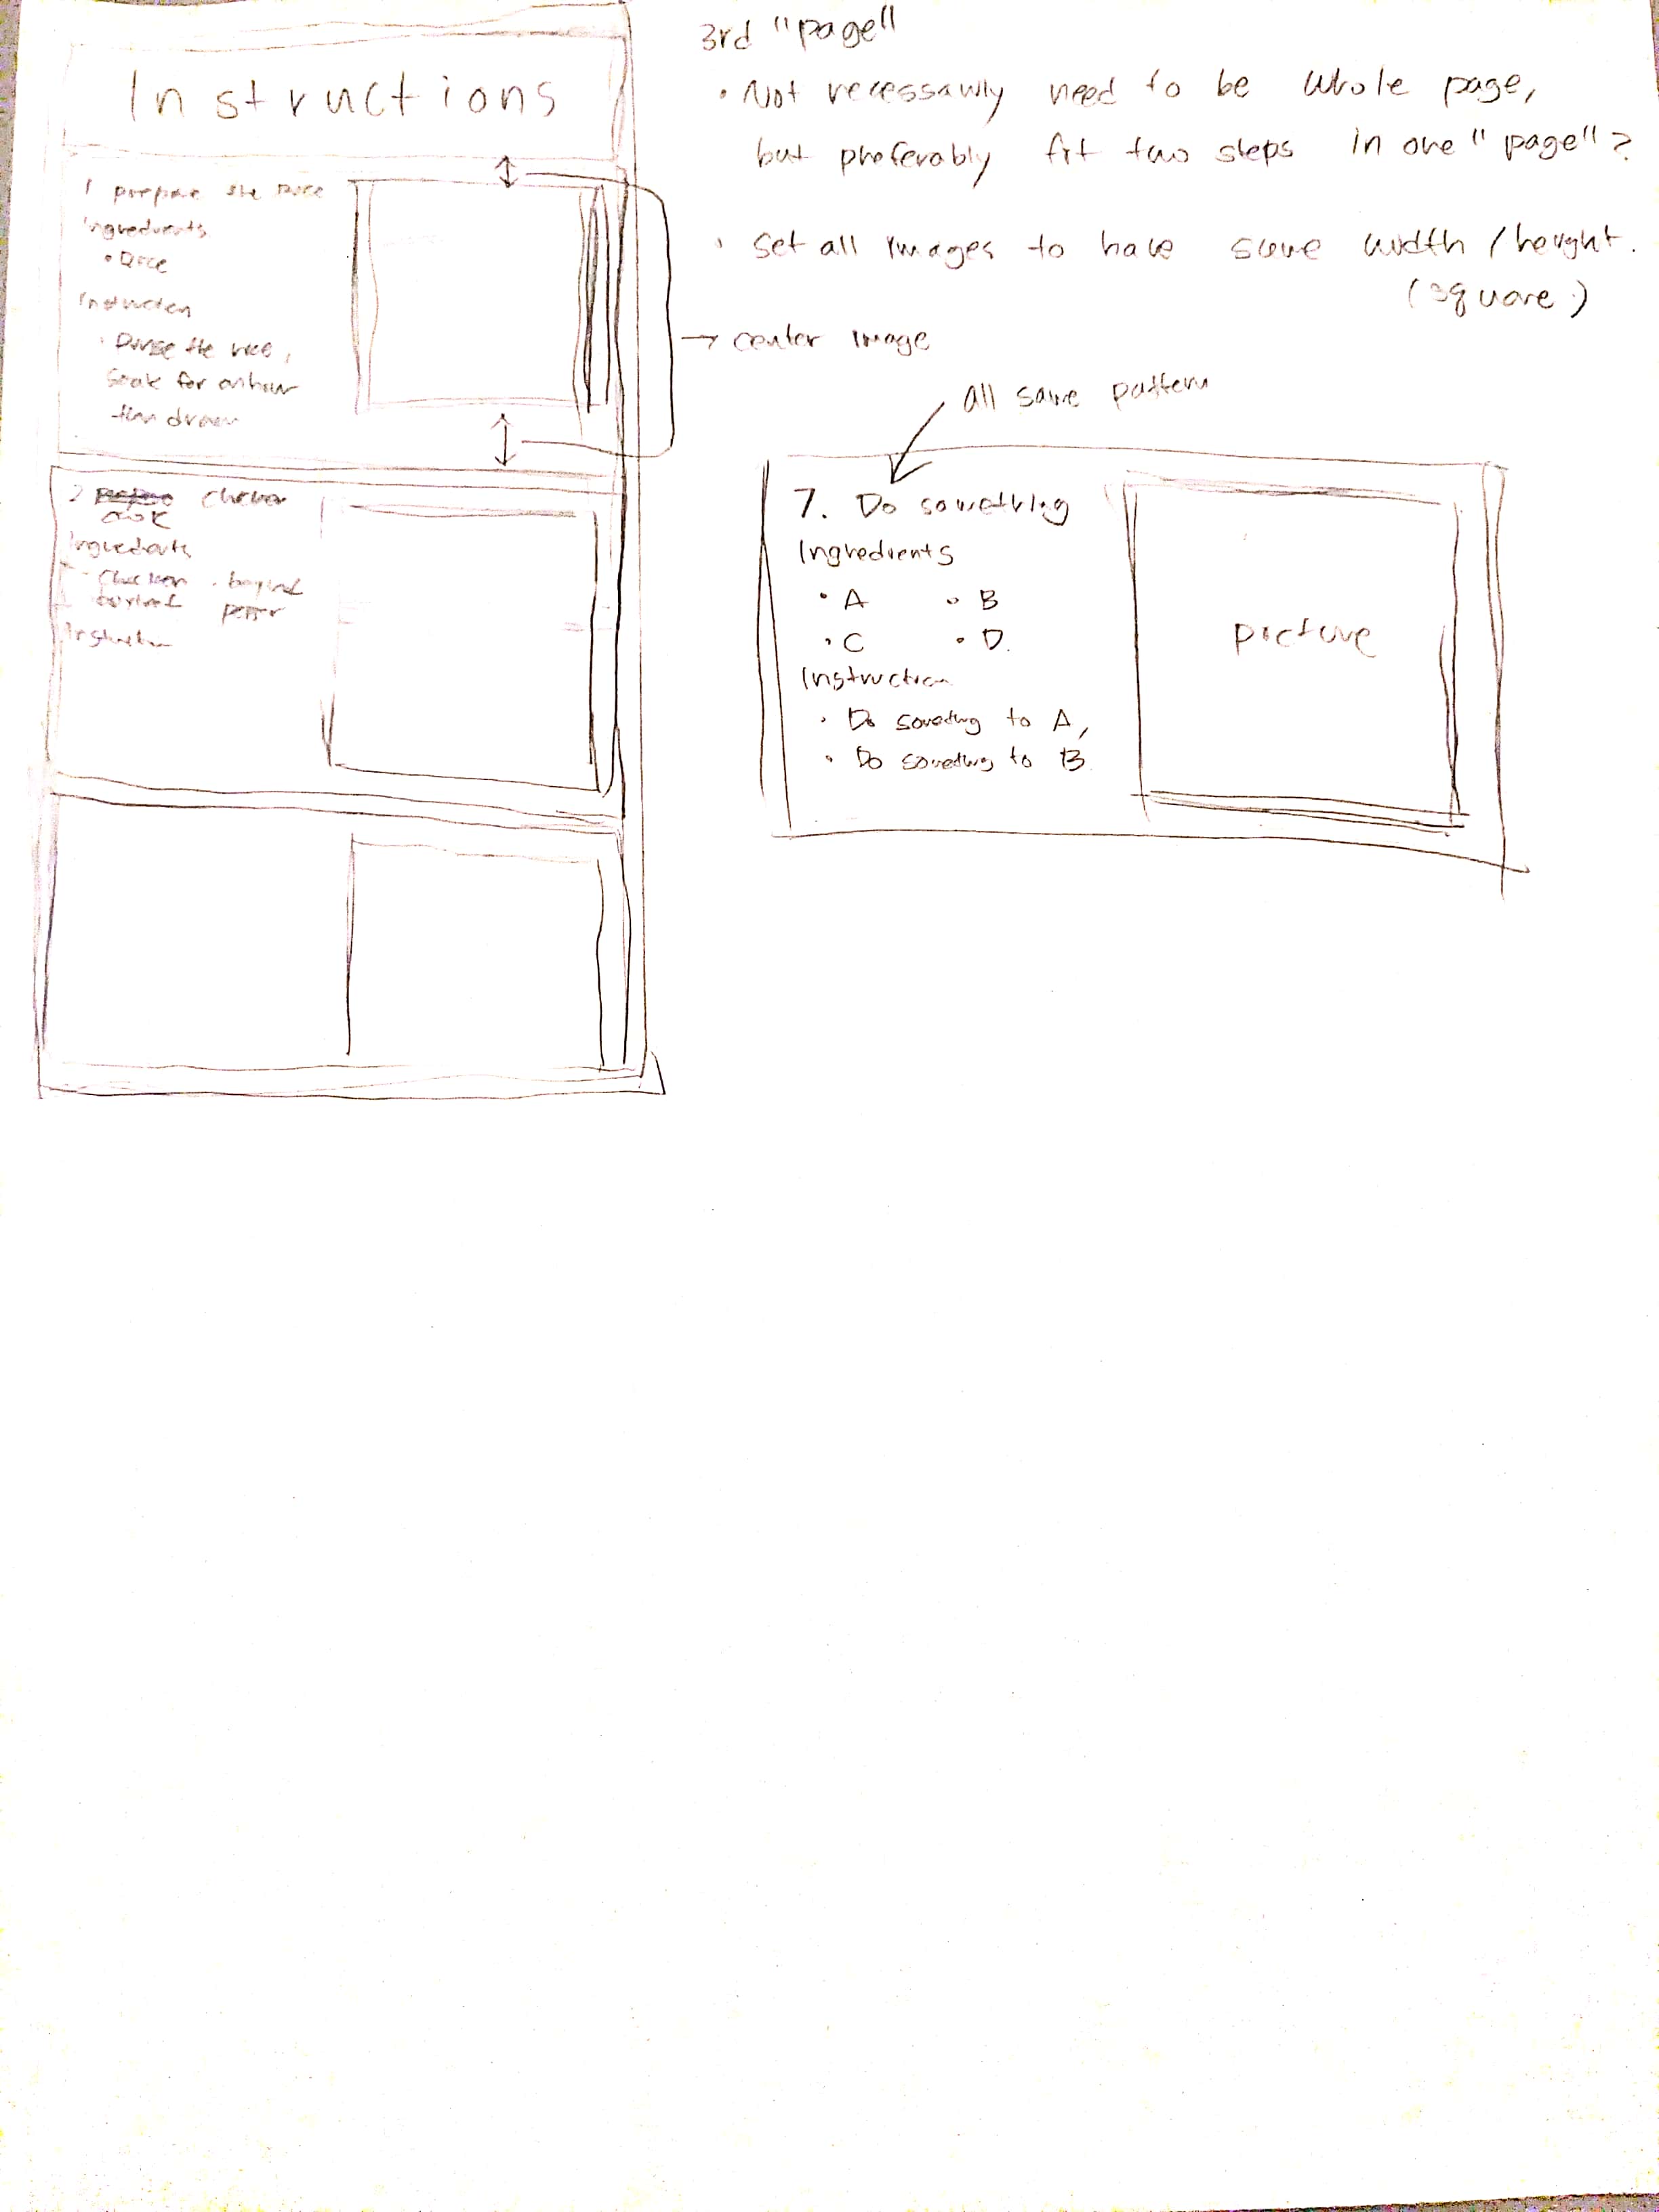 Instructions
1 prepare the rice
Ingredients
• Rice
Instruction
• Rinse the rice,
Soak for an hour
then drain
2 chicken
cook
Ingredients
- Chicken
Instruction
3rd "page"
• Not necessarily need to be whole page,
but preferably fit two steps in one "page"?
• Set all images to have same width / height.
(square)
→ center image
all same pattern
7. Do something
Ingredients
• A • B
• C • D.
Instruction
• Do something to A,
• Do something to B
picture